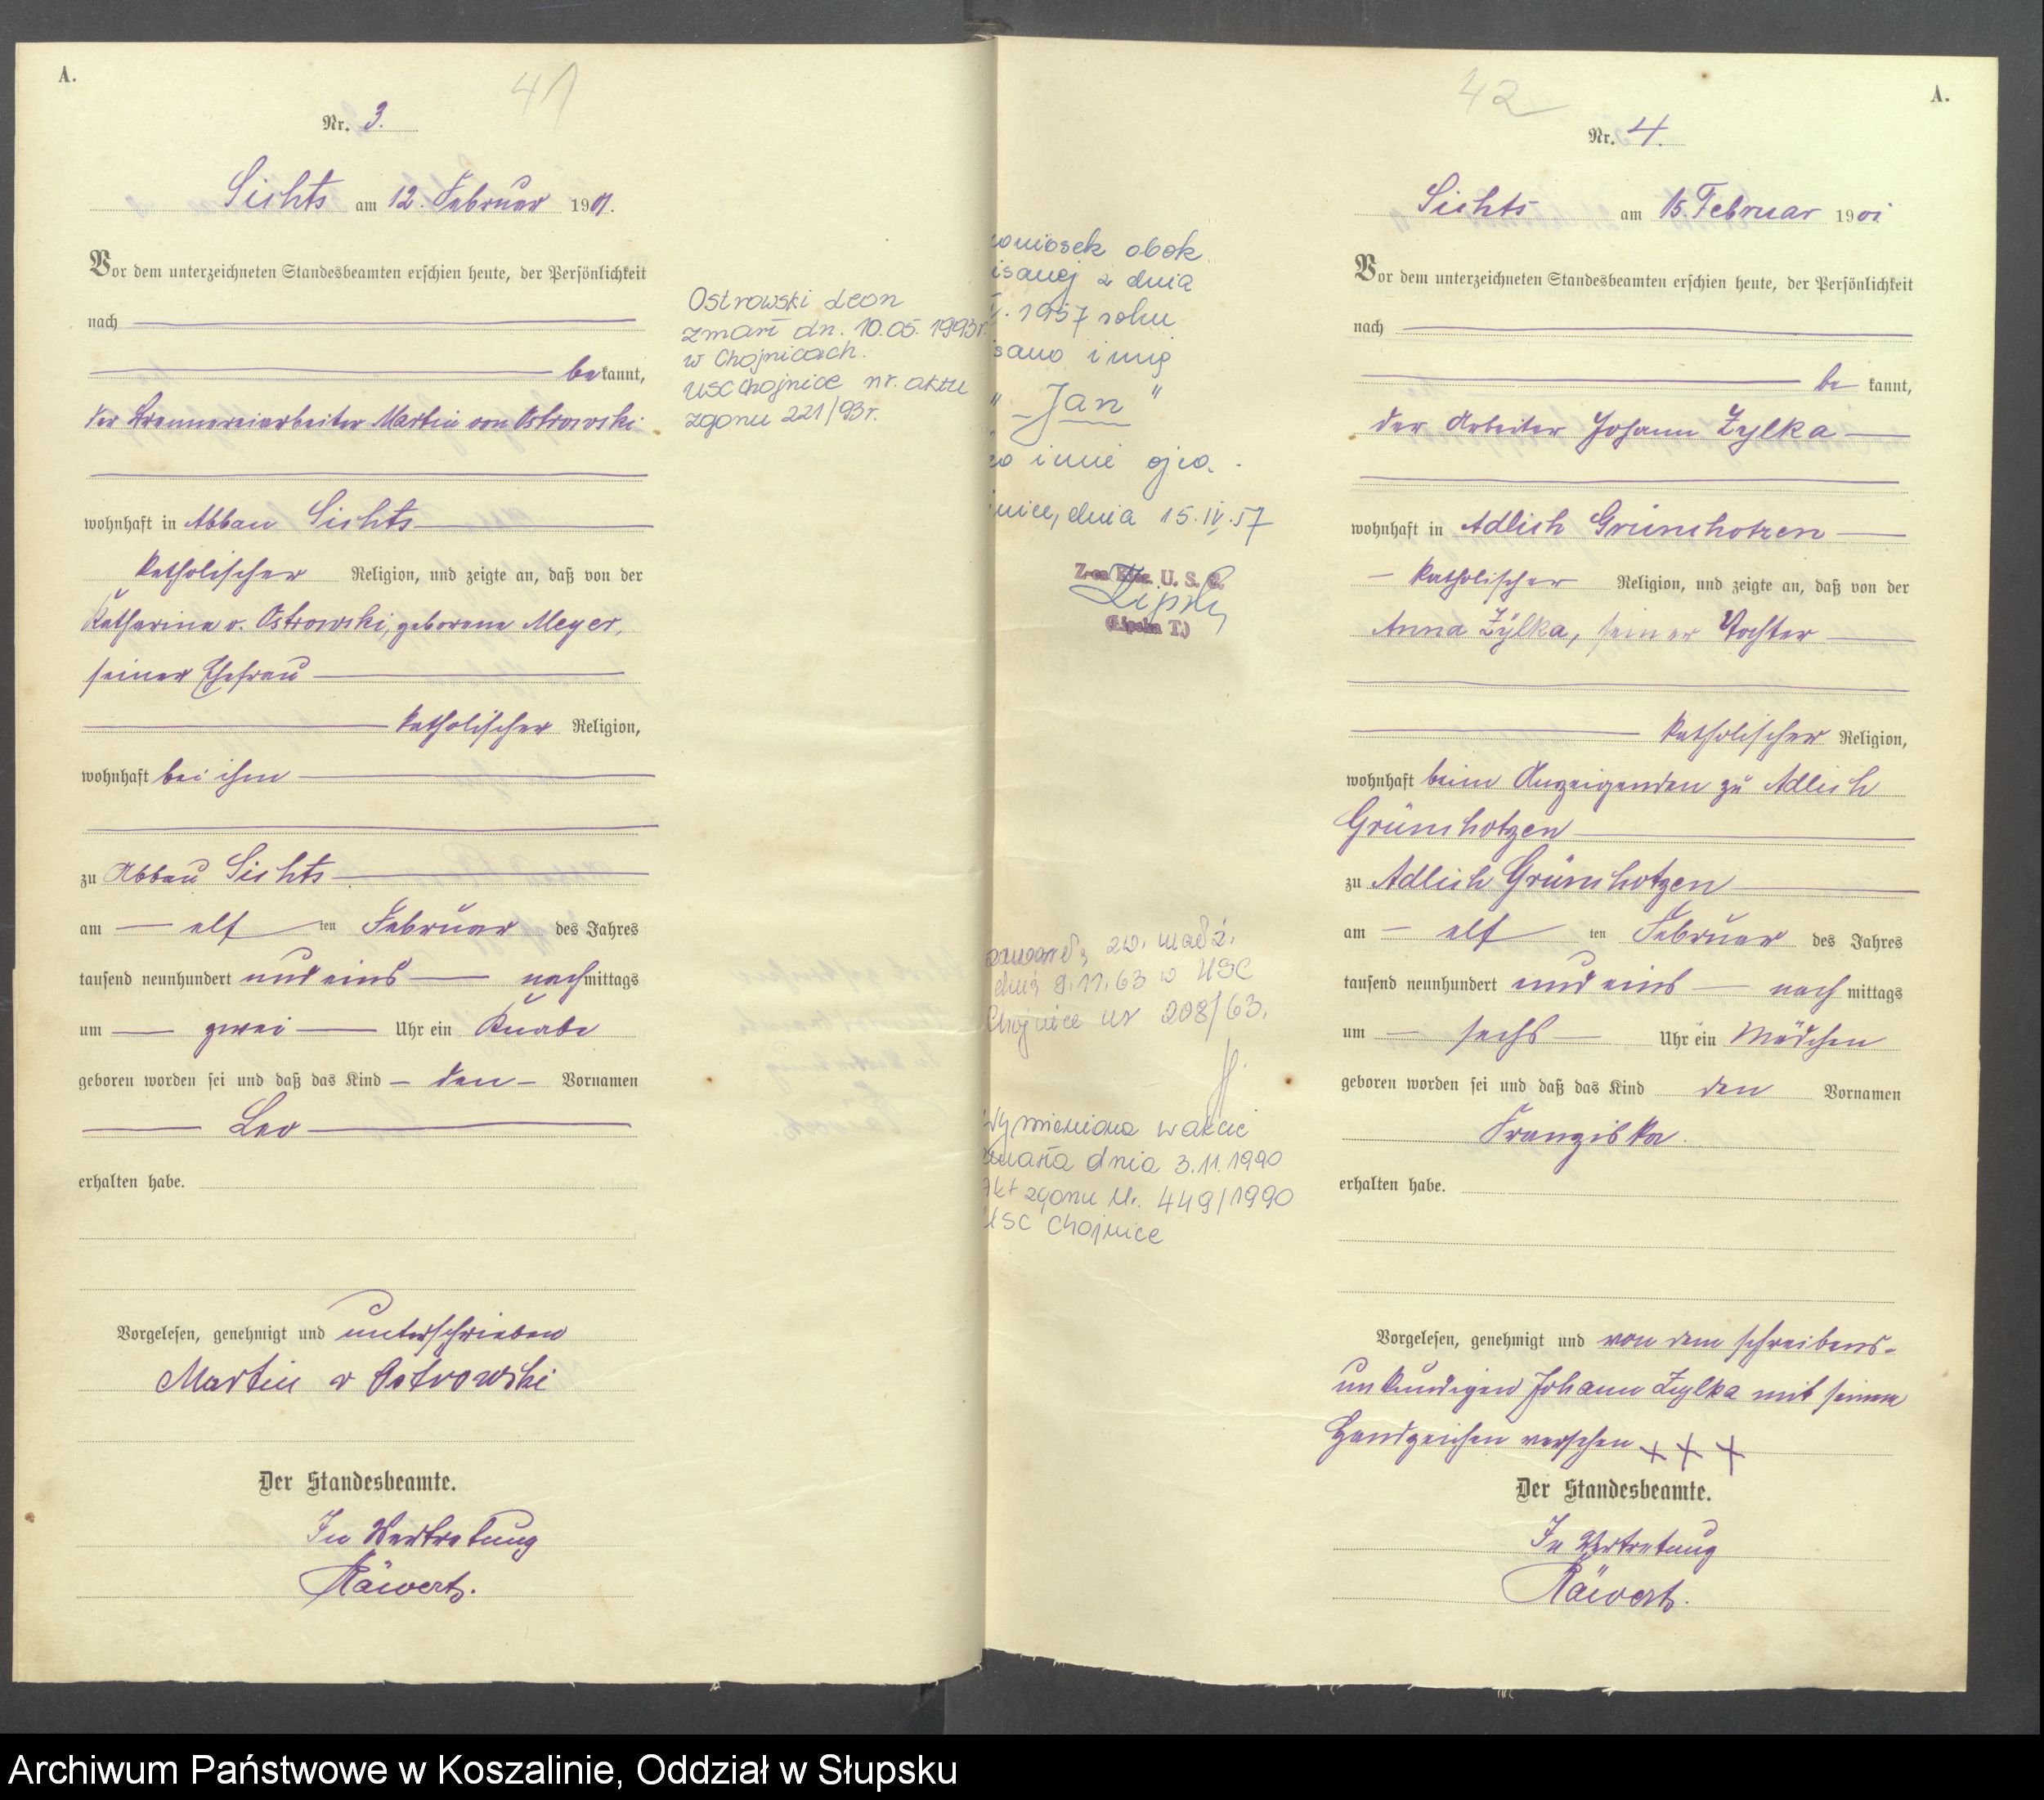 A.
41
Nr. 3.
Sichts am 12. Februar 1901.
Vor dem unterzeichneten Standesbeamten erschien heute, der Persönlichkeit
nach
bekannt,
der Brennereiarbeiter Martin von Ostrowski
wohnhaft in Abbau Sichts
katholischer Religion, und zeigte an, daß von der
Katharina v. Ostrowski, geborene Meyer,
seiner Ehefrau
katholischer Religion,
wohnhaft bei ihm
zu Abbau Sichts
am elf ten Februar des Jahres
tausend neunhundert und eins nachmittags
um zwei Uhr ein Knabe
geboren worden sei und daß das Kind den Vornamen
Leo
erhalten habe.
Vorgelesen, genehmigt und unterschrieben
Martin v Ostrowski
Der Standesbeamte.
In Vertretung
Räwert.
Ostrowski Leon
zmarł dn. 10.05.1993r.
w Chojnicach.
USC Chojnice nr. aktu
zgonu 221/93r.
wniosek obok
isanej z dnia
. 1957 roku
sano imię
" Jan "
imię ojca.
nice, dnia 15.IV.57
Z-ca Kier. U. S. C.
Lipska
(Lipska T.)
zw. małż.
dnia 9.11.63 w USC
Chojnice nr 208/63.
Wymieniona w akcie
zmarła dnia 3.11.1990
Akt zgonu Nr. 449/1990
USC Chojnice
42
A.
Nr. 4.
Sichts am 15. Februar 1901
Vor dem unterzeichneten Standesbeamten erschien heute, der Persönlichkeit
nach
bekannt,
der Arbeiter Johann Zylka
wohnhaft in Adlich Grünchotzen
katholischer Religion, und zeigte an, daß von der
Anna Zylka, seiner Tochter
katholischer Religion,
wohnhaft beim Anzeigenden zu Adlich
Grünchotzen
zu Adlich Grünchotzen
am elf ten Februar des Jahres
tausend neunhundert und eins nachmittags
um sechs Uhr ein Mädchen
geboren worden sei und daß das Kind den Vornamen
Franziska.
erhalten habe.
Vorgelesen, genehmigt und von dem schreibens-
unkundigen Johann Zylka mit seinem
Handzeichen versehen + + +
Der Standesbeamte.
In Vertretung
Räwert.
Archiwum Państwowe w Koszalinie, Oddział w Słupsku